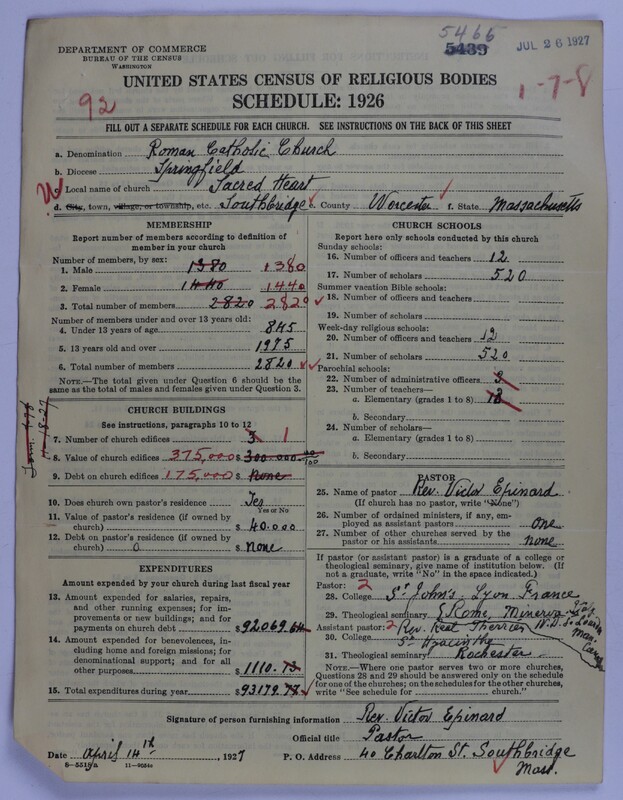 5465
5439
JUL 26 1927
DEPARTMENT OF COMMERCE
BUREAU OF THE CENSUS
WASHINGTON
1-7-8
UNITED STATES CENSUS OF RELIGIOUS BODIES
SCHEDULE: 1926
92
FILL OUT A SEPARATE SCHEDULE FOR EACH CHURCH. SEE INSTRUCTIONS ON THE BACK OF THIS SHEET
a. Denomination Roman Catholic Church
b. Diocese Springfield
c. Local name of church Sacred Heart
d. City, town, village, or township, etc. Southbridge e. County Worcester f. State Massachusetts
MEMBERSHIP
Report number of members according to definition of member in your church
Number of members, by sex:
1. Male 1380 1380
2. Female 1440 1440
3. Total number of members 2820 2820
Number of members under and over 13 years old:
4. Under 13 years of age 845
5. 13 years old and over 1975
6. Total number of members 2820
NOTE.—The total given under Question 6 should be the
same as the total of males and females given under Question 3.
CHURCH BUILDINGS
See instructions, paragraphs 10 to 12
7. Number of church edifices 3 1
8. Value of church edifices 375,000 $ 300.000 00/100
9. Debt on church edifices 175,000 $ None
10. Does church own pastor's residence Yes
Yes or No
11. Value of pastor's residence (if owned by
church) $ 40.000
12. Debt on pastor's residence (if owned by
church) 0 $ None
EXPENDITURES
Amount expended by your church during last fiscal year
13. Amount expended for salaries, repairs,
and other running expenses; for im-
provements or new buildings; and for
payments on church debt $ 92069.64
14. Amount expended for benevolences, in-
cluding home and foreign missions; for
denominational support; and for all
other purposes $ 1110.
15. Total expenditures during year $ 93179.
CHURCH SCHOOLS
Report here only schools conducted by this church
Sunday schools:
16. Number of officers and teachers 12
17. Number of scholars 520
Summer vacation Bible schools:
18. Number of officers and teachers
19. Number of scholars
Week-day religious schools:
20. Number of officers and teachers 12
21. Number of scholars 520
Parochial schools:
22. Number of administrative officers 3
23. Number of teachers—
a. Elementary (grades 1 to 8) 12
b. Secondary
24. Number of scholars—
a. Elementary (grades 1 to 8)
b. Secondary
PASTOR
25. Name of pastor Rev. Victor Epinard
(If church has no pastor, write "None")
26. Number of ordained ministers, if any, em-
ployed as assistant pastors one
27. Number of other churches served by the
pastor or his assistants none
If pastor (or assistant pastor) is a graduate of a college or
theological seminary, give name of institution below. (If
not a graduate, write "No" in the space indicated.)
Pastor: 2
28. College St John's, Lyon France
29. Theological seminary Rome, Minerva
Assistant pastor: 2 Rev.
30. College St Hyacinthe
31. Theological seminary Rochester
NOTE.—Where one pastor serves two or more churches,
Questions 28 and 29 should be answered only on the schedule
for one of the churches; on the schedules for the other churches,
write "See schedule for church."
Signature of person furnishing information Rev. Victor Epinard
Official title Pastor
Date April 14th, 1927 P. O. Address 40 Charlton St. Southbridge
Mass.
8-5518a